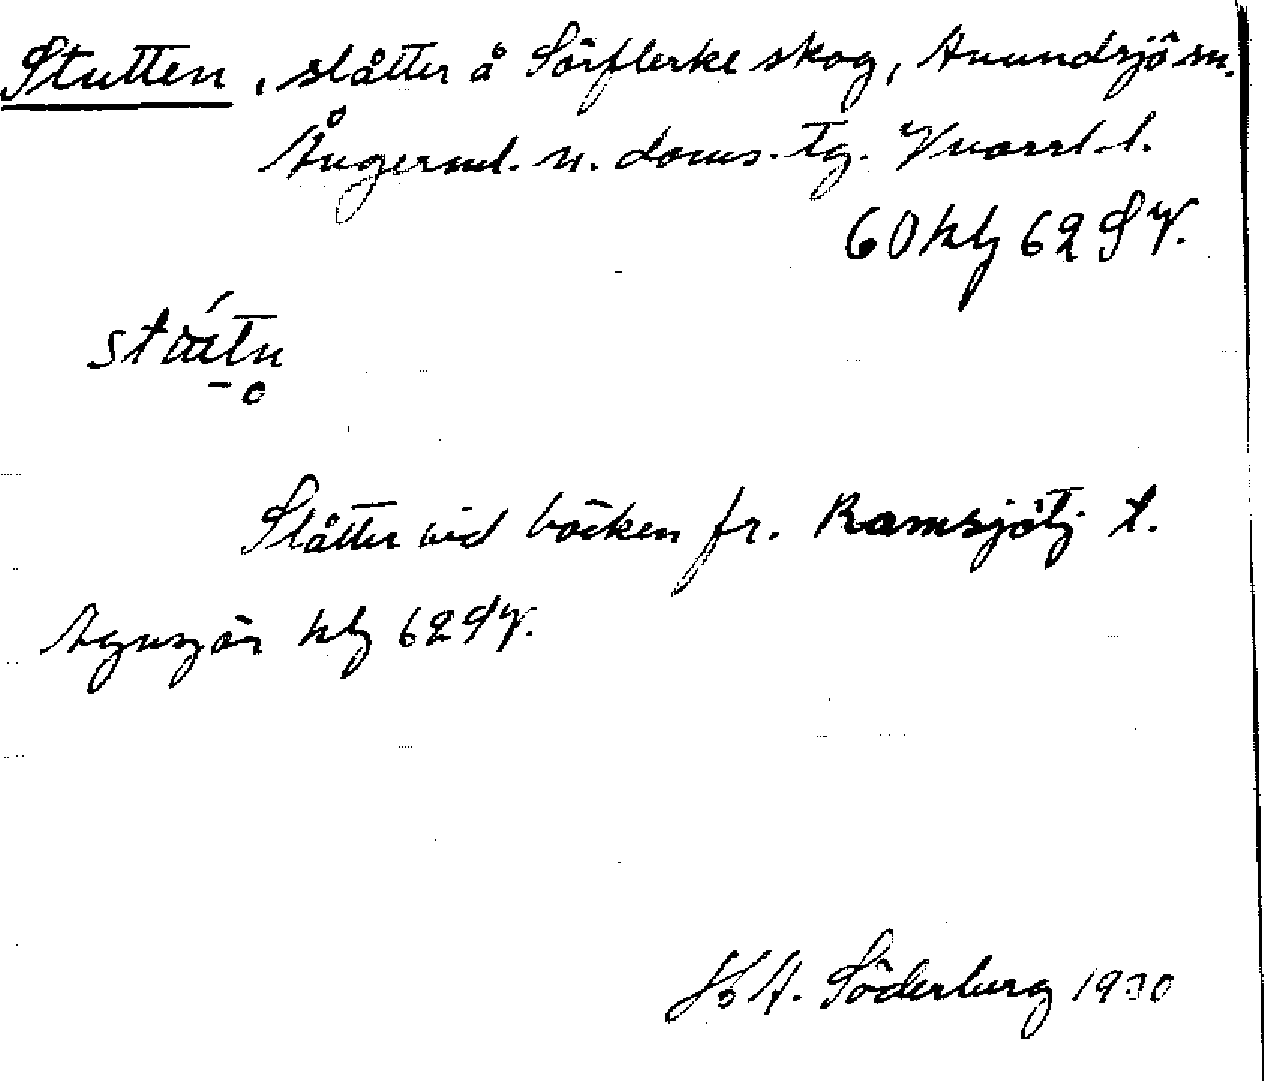 Stutten, slåtter å Sörflerke skog, Anundsjö sn.
Ångerml. n. doms. tg. Vnorrl. l.
60 kbj 62 SV.
Slåtter vid bäcken fr. Ramsjötj t.
Agnsjön kbj 62 SV.
H A. Söderberg 1930